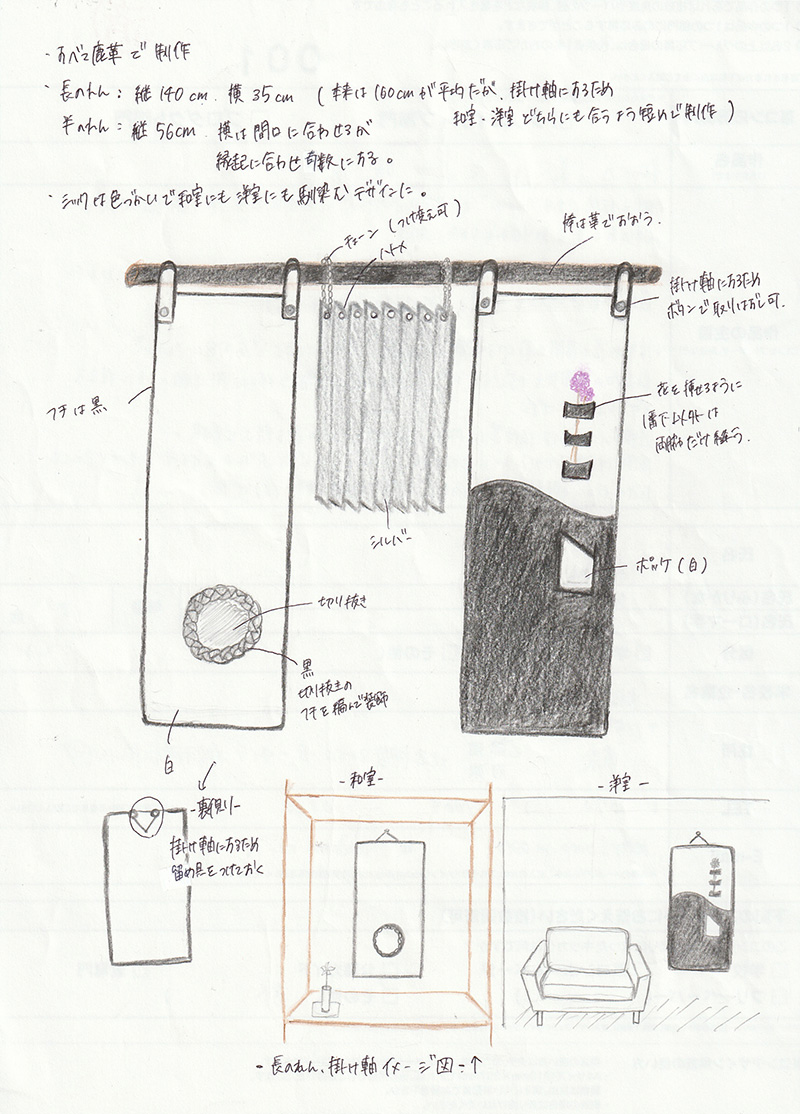 ・すべて鹿革で制作
・長のれん：縦140cm．横35cm（本来は160cmが平均だが、掛け軸にするため
和室・洋室どちらにも合うよう短めで制作）
半のれん：縦56cm．横は間口に合わせるが
縁起に合わせ奇数にする。
・シックな色づかいで和室にも洋室にも馴染むデザインに。
チェーン（つけ変え可）
ハトメ
棒は革でおおう．
掛け軸にするため
ボタンで取りはずし可．
フチは黒
花を挿せるように
1番下以外は
両脇だけ縫う．
シルバー
ポッケ（白）
切り抜き
黒
切り抜きの
フチを編んで装飾
白
-裏側-
掛け軸にするため
留め具をつけておく
-和室-
-洋室-
・長のれん、掛け軸イメージ図：↑